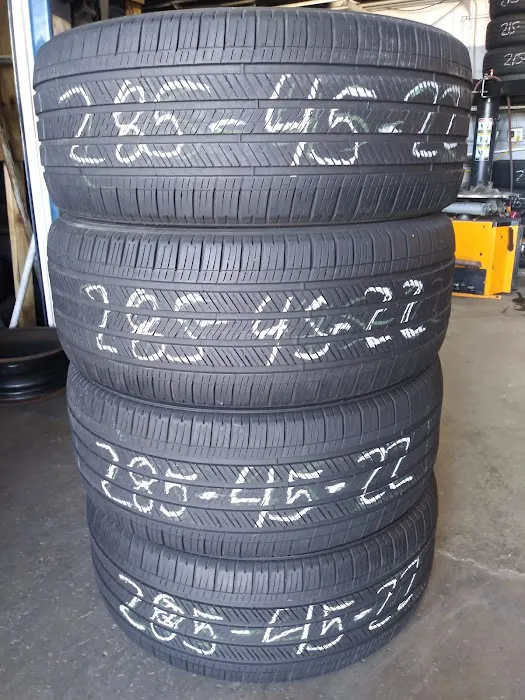 285-45-22
285-45-22
285-45-22
285-45-22